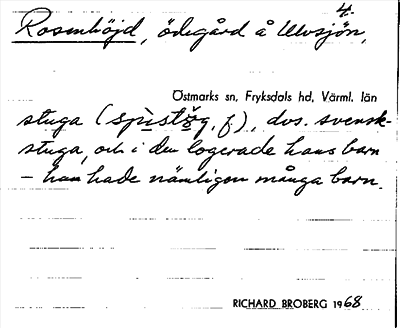 4.
Rosenhöjd, ödegård å Ulvsjön,
Östmarks sn, Fryksdals hd, Värml. län
stuga (spìstŏg, f), dvs. svensk-
stuga, och i den logerade hans barn
– han hade nämligen många barn.
RICHARD BROBERG 1968